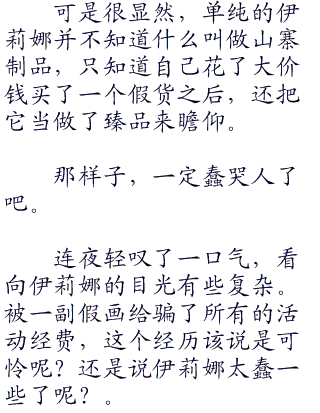 可是很显然，单纯的伊
莉娜并不知道什么叫做山寨
制品，只知道自己花了大价
钱买了一个假货之后，还把
它当做了臻品来瞻仰。
那样子，一定蠢哭人了
吧。
连夜轻叹了一口气，看
向伊莉娜的目光有些复杂。
被一副假画给骗了所有的活
动经费，这个经历该说是可
怜呢？还是说伊莉娜太蠢一
些了呢？。